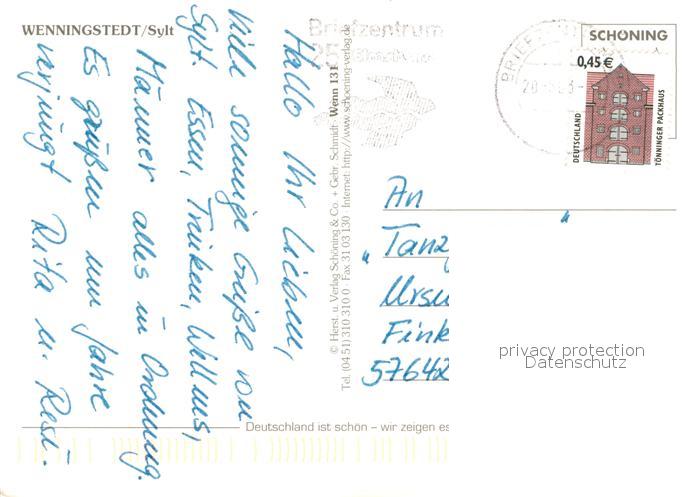 WENNINGSTEDT/Sylt
Hallo Ihr Lieben,
viele sonnige Grüße von
Sylt. Essen, Trinken,
Männer alles in Ordnung.
Es grüßen um Jahre
verjüngt Rita u. Resi.
© Herst. u. Verlag Schöning & Co. + Gebr. Schmidt · Wenn 131
Tel. (04 51) 310 310 0 · Fax 31 03 130 · Internet: http://www.schoening-verlag.de
Briefzentrum
SCHÖNING
0,45 €
DEUTSCHLAND
TÖNNINGER PACKHAUS
An
"Tanz
Ursu
Fink
57642
privacy protection
Datenschutz
Deutschland ist schön – wir zeigen es